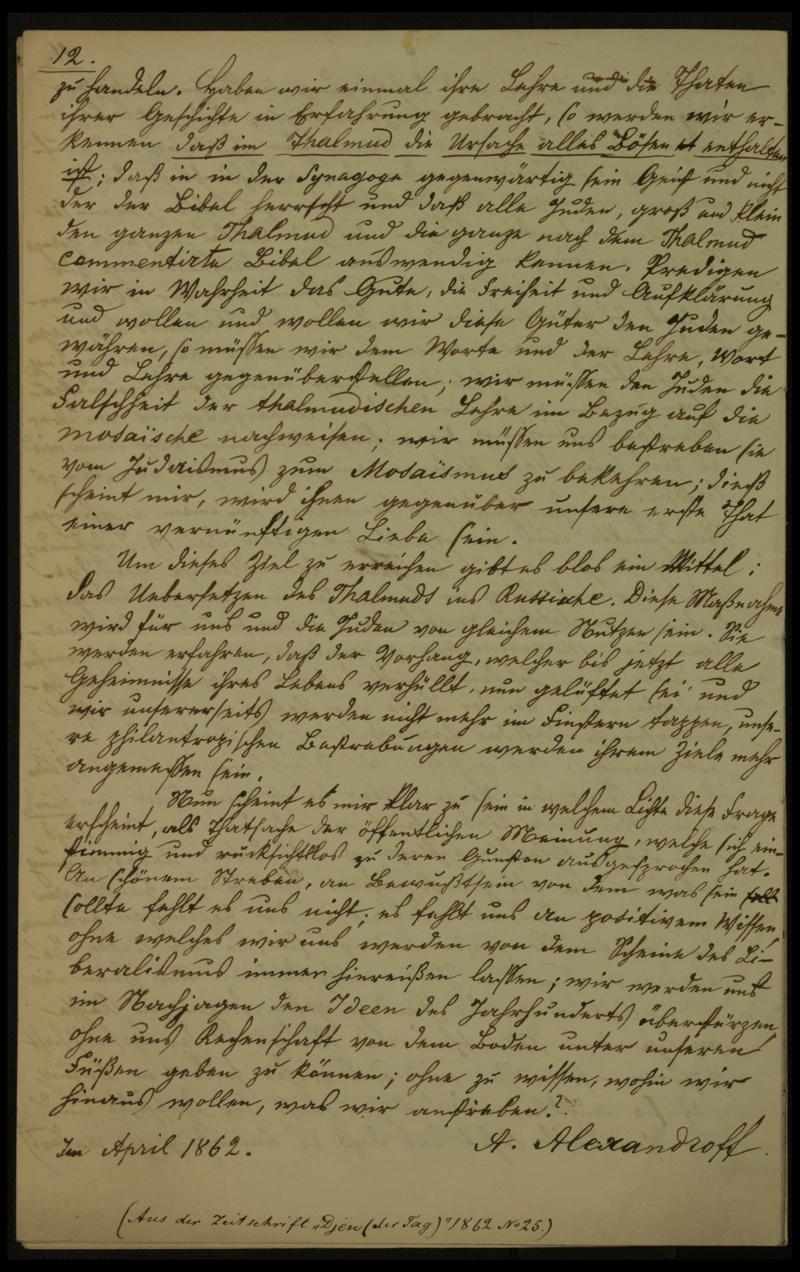 12.
zu handeln. Haben wir einmal ihre Lehre und die Thaten
ihrer Geschichte in Erfahrung gebracht, so werden wir er-
kennen daß im Thalmud die Ursache alles Bösen enthalten
ist; daß in in der Synagoge gegenwärtig sein Geist und nicht
der der Bibel herrscht und daß alle Juden, groß und klein
den ganzen Thalmud und die ganze nach dem Thalmud
commentirte Bibel auswendig kennen. Predigen
wir in Wahrheit das Gute, die Freiheit und Aufklärung
und wollen und wollen wir diese Güter den Juden ge-
währen, so müssen wir dem Worte und der Lehre, Wort
und Lehre gegenüberstellen; wir müssen den Juden die
Falschheit der thalmudischen Lehre im Bezug auf die
mosaïsche nachweisen; wir müssen uns bestreben sie
vom Judaismus zum Mosaïsmus zu bekehren; dieß
scheint mir, wird ihnen gegenüber unsere erste That
einer vernünftigen Liebe sein.
Um dieses Ziel zu erreichen gibt es blos ein Mittel:
das Uebersetzen des Thalmuds ins Russische. Diese Maßnahme
wird für uns und die Juden von gleichem Nutzen sein. Sie
werden erfahren, daß der Vorhang, welcher bis jetzt alle
Geheimnisse ihres Lebens verhüllt, nun gelüftet sei und
wir unsererseits werden nicht mehr im Finstern tappen, unse-
re philantropischen Bestrebungen werden ihrem Ziele mehr
angemessen sein.
Nun scheint es mir klar zu sein in welchem Lichte diese Frage
erscheint, als Thatsache der öffentlichen Meinung, welche sich ein-
stimmig und rücksichtslos zu deren Gunsten ausgesprochen hat.
An schönem Streben, an Bewußtsein von dem was sein soll
sollte fehlt es uns nicht; es fehlt uns an positivem Wissen,
ohne welches wir uns werden von dem Scheine des Li-
beralismus immer hinreißen lassen; wir werden uns
im Nachjagen den Ideen des Jahrhunderts überstürzen,
ohne uns Rechenschaft von dem Boden unter unseren
Füßen geben zu können; ohne zu wissen, wohin wir
hinaus wollen, was wir anstreben?.
Im April 1862. A. Alexandroff.
(Aus der Zeitschrift „Djen (der Tag)" 1862 No 25.)